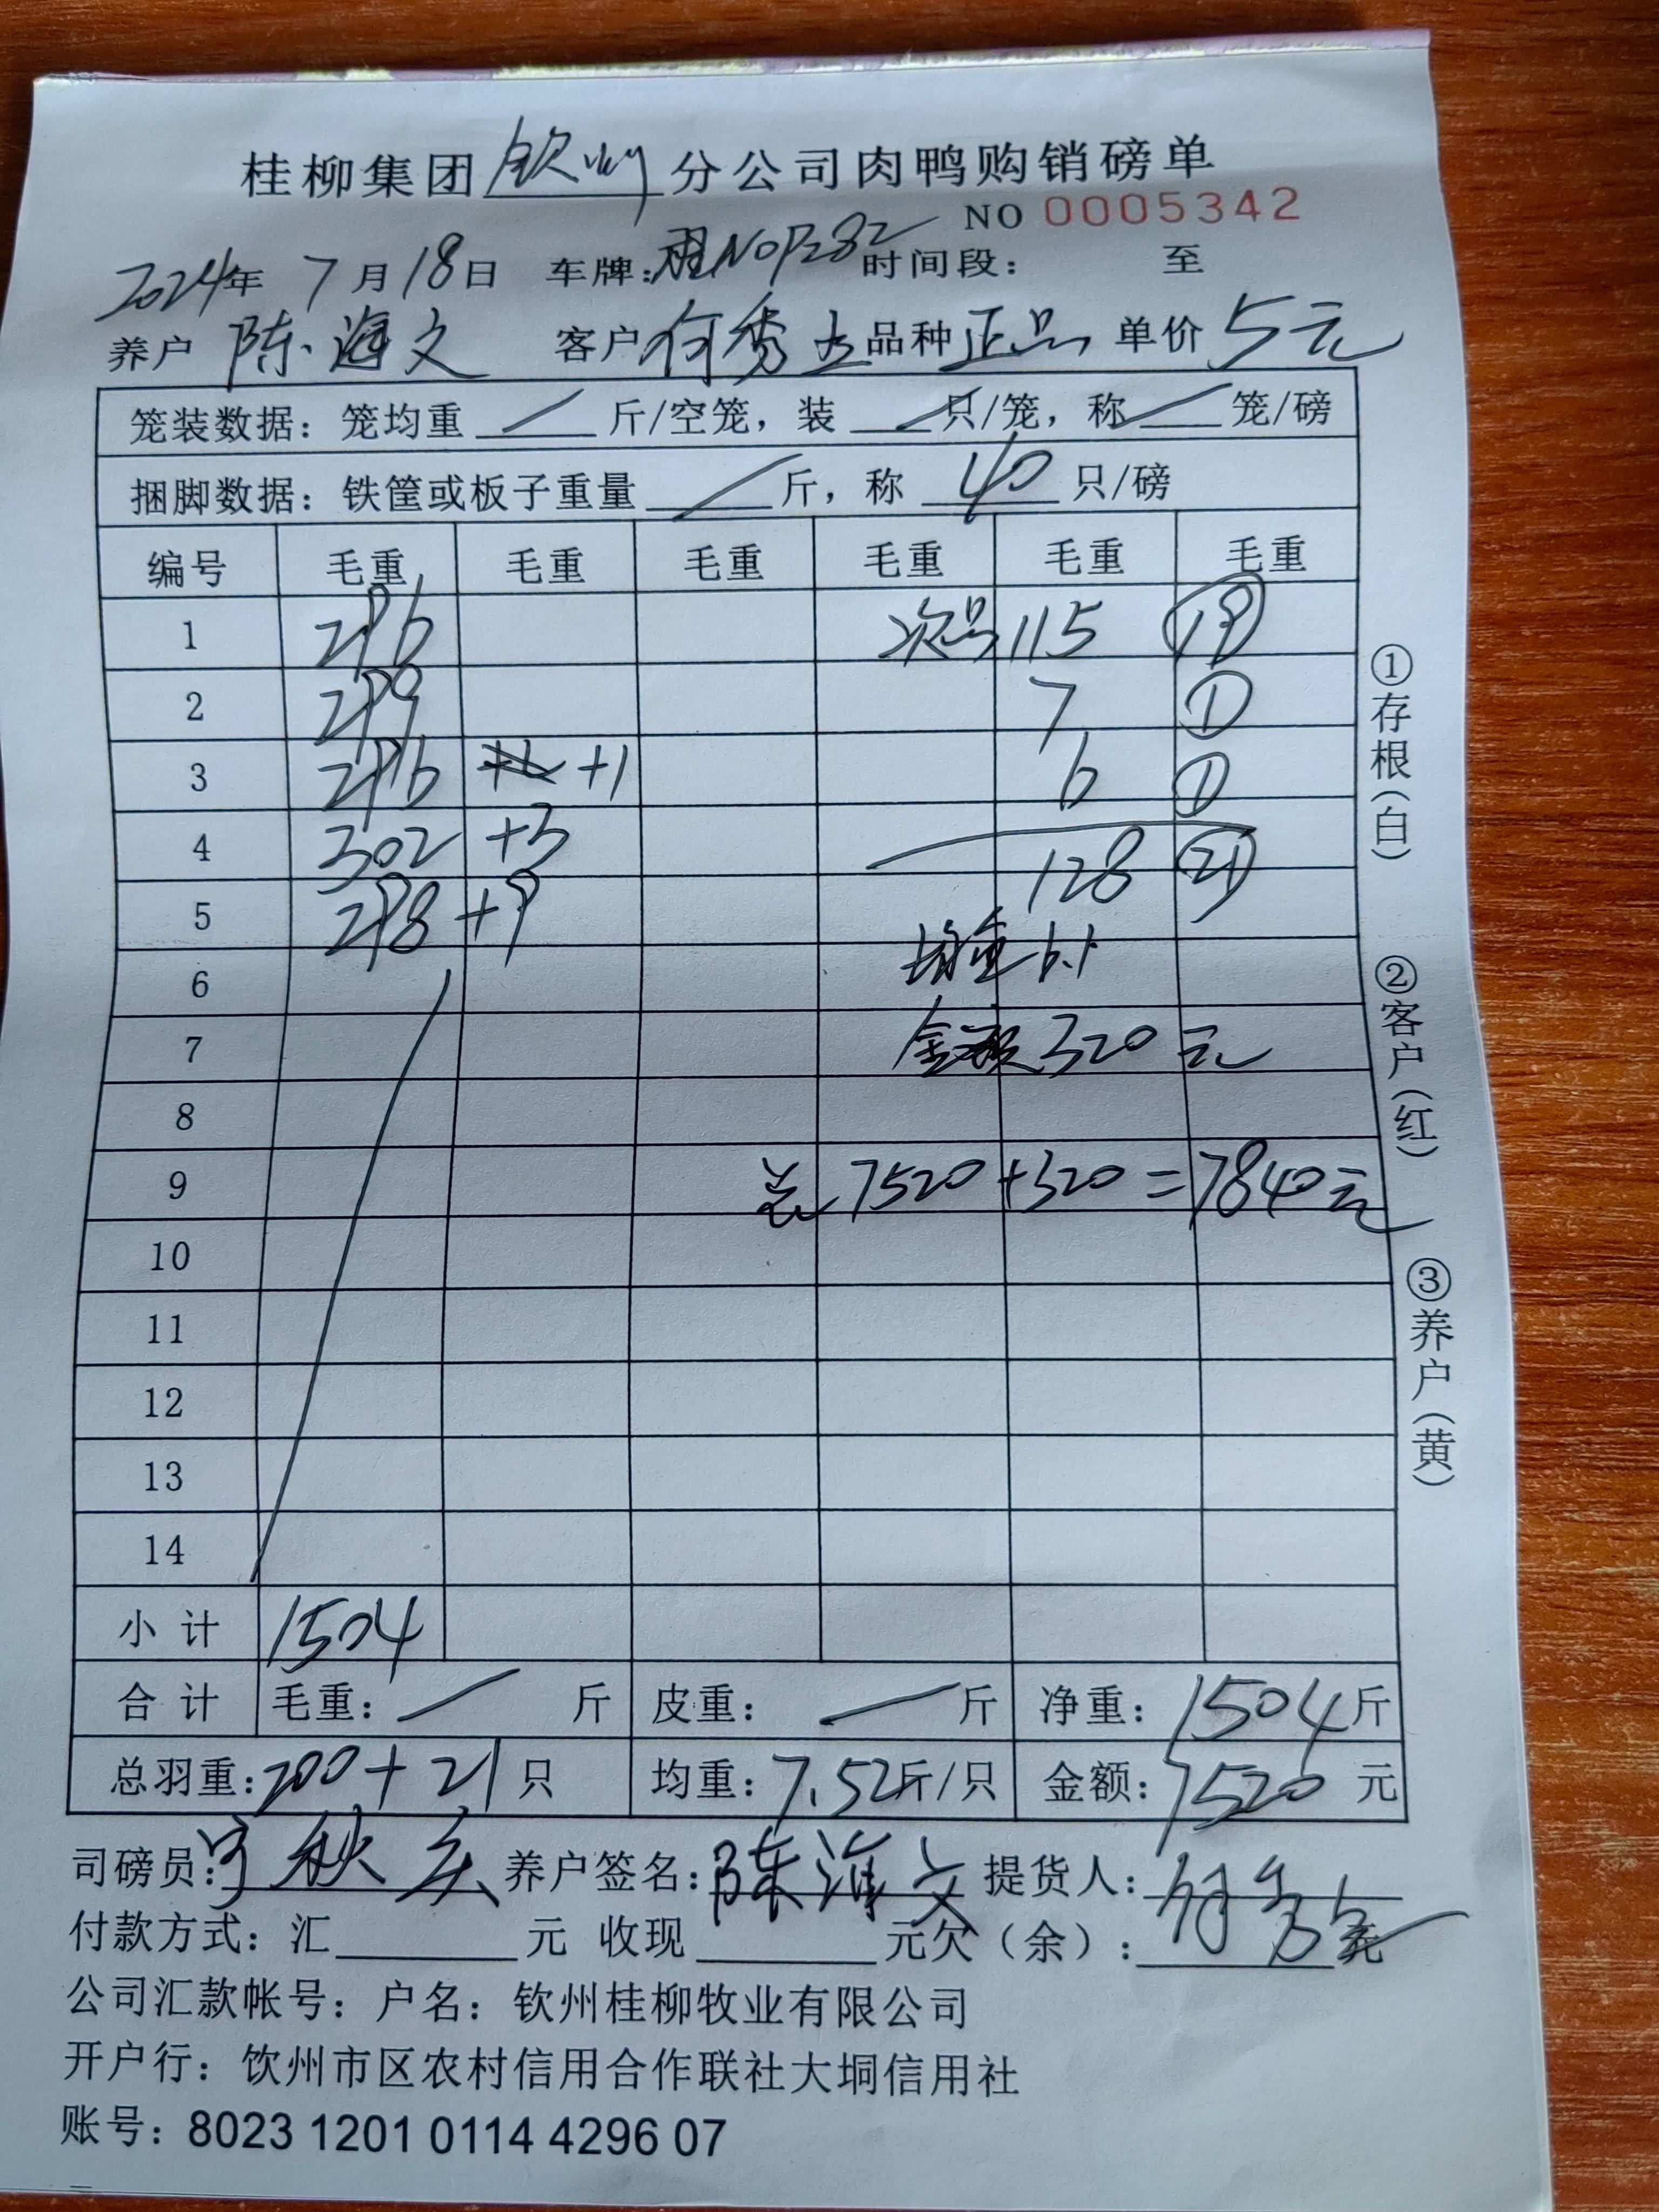 桂柳集团钦州分公司肉鸭购销磅单
NO 0005342
2024年 7月18日 车牌:桂N0P282 时间段: 至
养户 陈海文 客户 何秀 品种 正品 单价 5元
笼装数据: 笼均重 / 斤/空笼, 装 / 只/笼, 称 / 笼/磅
捆脚数据: 铁筐或板子重量 / 斤, 称 40 只/磅
编号 毛重 毛重 毛重 毛重 毛重 毛重
1 296 次品 115 19
2 299 7 1
3 296 +1 6 1
4 302 +3 128 21
5 298 +9
6 均重 6.1
7 金额 320元
8
9 总 7520+320=7840元
10
11
12
13
14
小计 1504
合计 毛重: / 斤 皮重: / 斤 净重: 1504斤
总羽重: 200+21只 均重: 7.52斤/只 金额: 7520元
司磅员: 养户签名: 陈海文 提货人:
付款方式: 汇 元 收现 元欠(余): 元
公司汇款帐号: 户名: 钦州桂柳牧业有限公司
开户行: 钦州市区农村信用合作联社大垌信用社
账号: 8023 1201 0114 4296 07
①存根(白)
②客户(红)
③养户(黄)